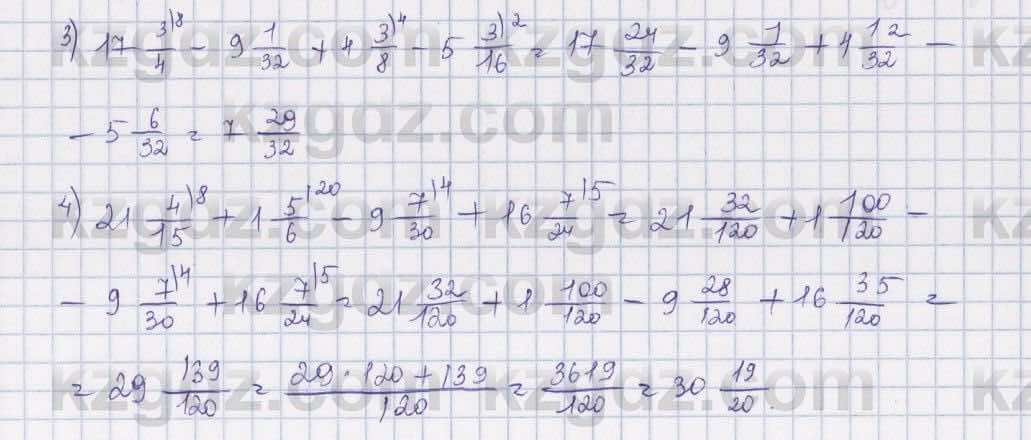 3) 17 3/4 |8 - 9 1/32 + 4 3/8 |4 - 5 3/16 |2 = 17 24/32 - 9 1/32 + 4 12/32 -
- 5 6/32 = 7 29/32
4) 21 4/15 |8 + 1 5/6 |20 - 9 7/30 |4 + 16 7/24 |5 = 21 32/120 + 1 100/120 -
- 9 7/30 |4 + 16 7/24 |5 = 21 32/120 + 1 100/120 - 9 28/120 + 16 35/120 =
= 29 139/120 = 29·120+139/120 = 3619/120 = 30 19/20.
kzgdz.com